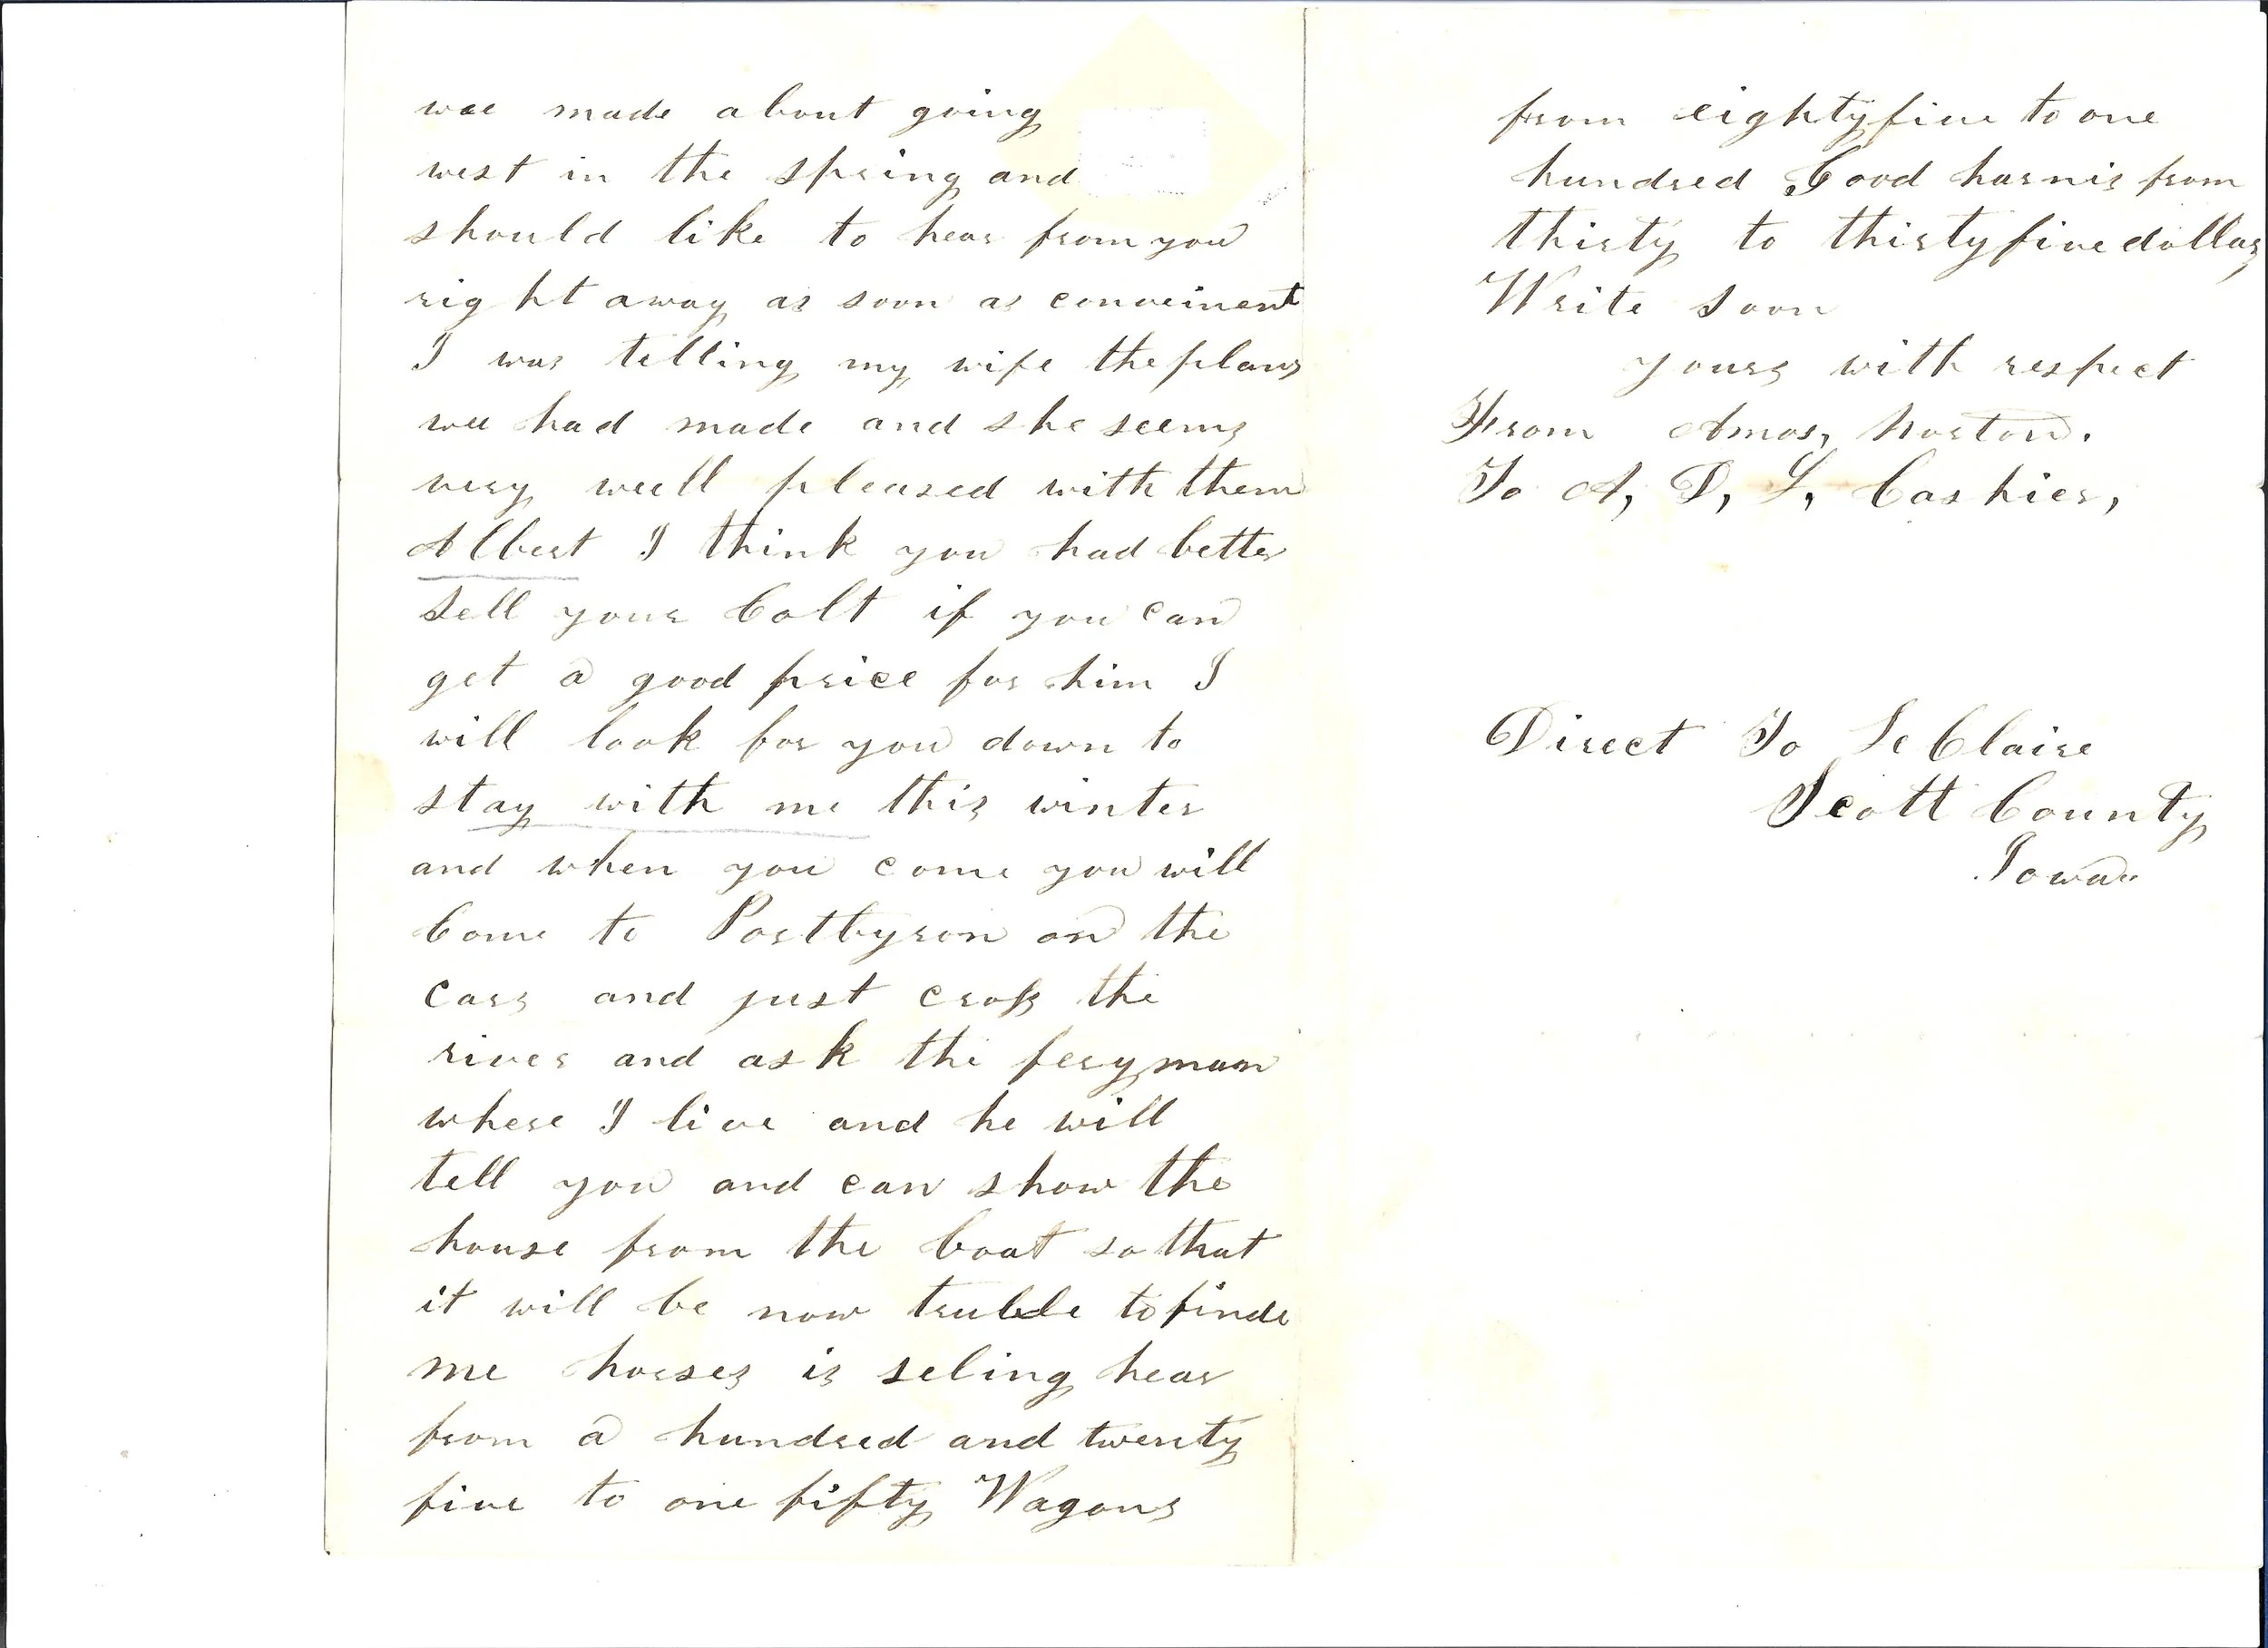 wee made about going
west in the spring and
should like to hear from you
right away as soon as conveinent
I was telling my wife the plans
wee had made and she seems
very weell pleased with them
Albert I think you had better
sell your Colt if you can
get a good price for him I
will look for you down to
stay with me this winter
and when you come you will
Come to Portbyron on the
cars and just cross the
river and ask the feryman
where I live and he will
tell you and can show the
house from the boat so that
it will be now truble to finde
me horses is seling hear
from a hundred and twenty
five to one fifty Wagons
from eightyfive to one
hundred Good harnis from
thirty to thirtyfive dollars
Write soon
yours with respect
From Amos, Norton.
To A, D, L, Cashier,
Direct To Le Claire
Scott County
Iowa